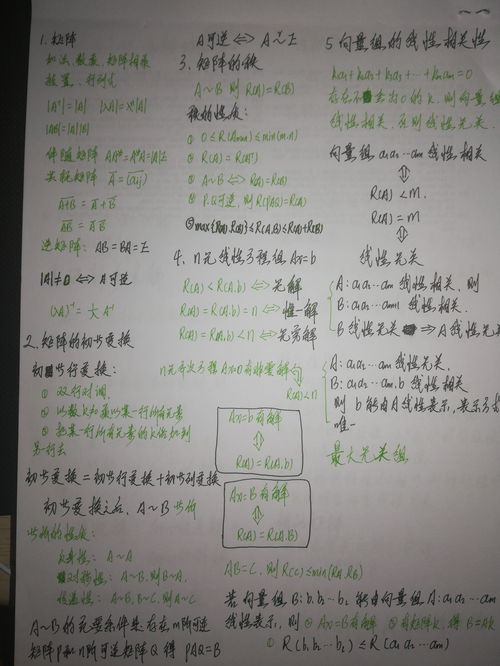 1. 矩阵
加法、数乘、矩阵相乘
转置、行列式
|Aᵀ| = |A| |λA| = λⁿ|A|
|AB| = |A||B|
伴随矩阵 AA* = A*A = |A|E
共轭矩阵 A̅ = (a̅ij)
A̅+̅B̅ = A̅ + B̅
A̅B̅ = A̅ B̅
逆矩阵: AB = BA = E
|A| ≠ 0 ⇔ A可逆
(λA)⁻¹ = 1/λ A⁻¹
2. 矩阵的初步变换
初步行变换:
① 双行对调
② 以数k和乘以某一行所有元素
③ 把某一行所有元素的k倍加到
另一行去
初步变换 = 初步行变换 + 初步列变换
初步变换之后, A~B
性质:
反身性: A~A
对称性: A~B, 则B~A
传递性: A~B, B~C, 则A~C
A~B的充要条件是存在m阶可逆
矩阵P和n阶可逆矩阵Q 得 PAQ = B
A可逆 ⇔ A~E
3. 矩阵的秩
A~B 则 R(A) = R(B)
秩的性质:
① 0 ≤ R(Am×n) ≤ min(m.n)
② R(A) = R(Aᵀ)
③ A~B ⇔ R(A) = R(B)
④ P.Q可逆 则 R(PAQ) = R(A)
⑤ max{R(A).R(B)} ≤ R(A.B) ≤ R(A)+R(B)
4. n元线性方程组 Ax = b
R(A) < R(A.b) ⇔ 无解
R(A) = R(A.b) = n ⇔ 惟一解
R(A) = R(A.b) < n ⇔ 无穷解
n元齐次方程 Ax=0有非零解 ⇔
R(A) < n
Ax = b 有解
⇕
R(A) = R(A.b)
Ax = B 有解
⇕
R(A) = R(A.B)
AB = C, 则 R(C) ≤ min(RA.RB)
若向量组 B: b₁ b₂ … bₗ 能由向量组 A: a₁ a₂ … am
线性表示, 则 ① Ax = B有解 ② 有矩阵K, 得 B = AK
③ R(b₁ b₂ … bₗ) ≤ R(a₁ a₂ … am)
5. 向量组的线性相关性
k₁a₁ + k₂a₂ + k₃a₃ + … + kmam = 0
存在不全为0的k, 则向量组
线性相关, 否则线性无关.
向量组 a₁ a₂ … am 线性相关
⇕
R(A) < m.
R(A) = m
⇕
线性无关
A: a₁ a₂ … am 线性相关, 则
B: a₁ a₂ … am+1 线性相关.
B 线性无关 ⇒ A 线性无关
A: a₁ a₂ … am 线性无关.
B: a₁ a₂ … am.b 线性相关
则 b 能由A线性表示, 表示
唯一
最大无关组.